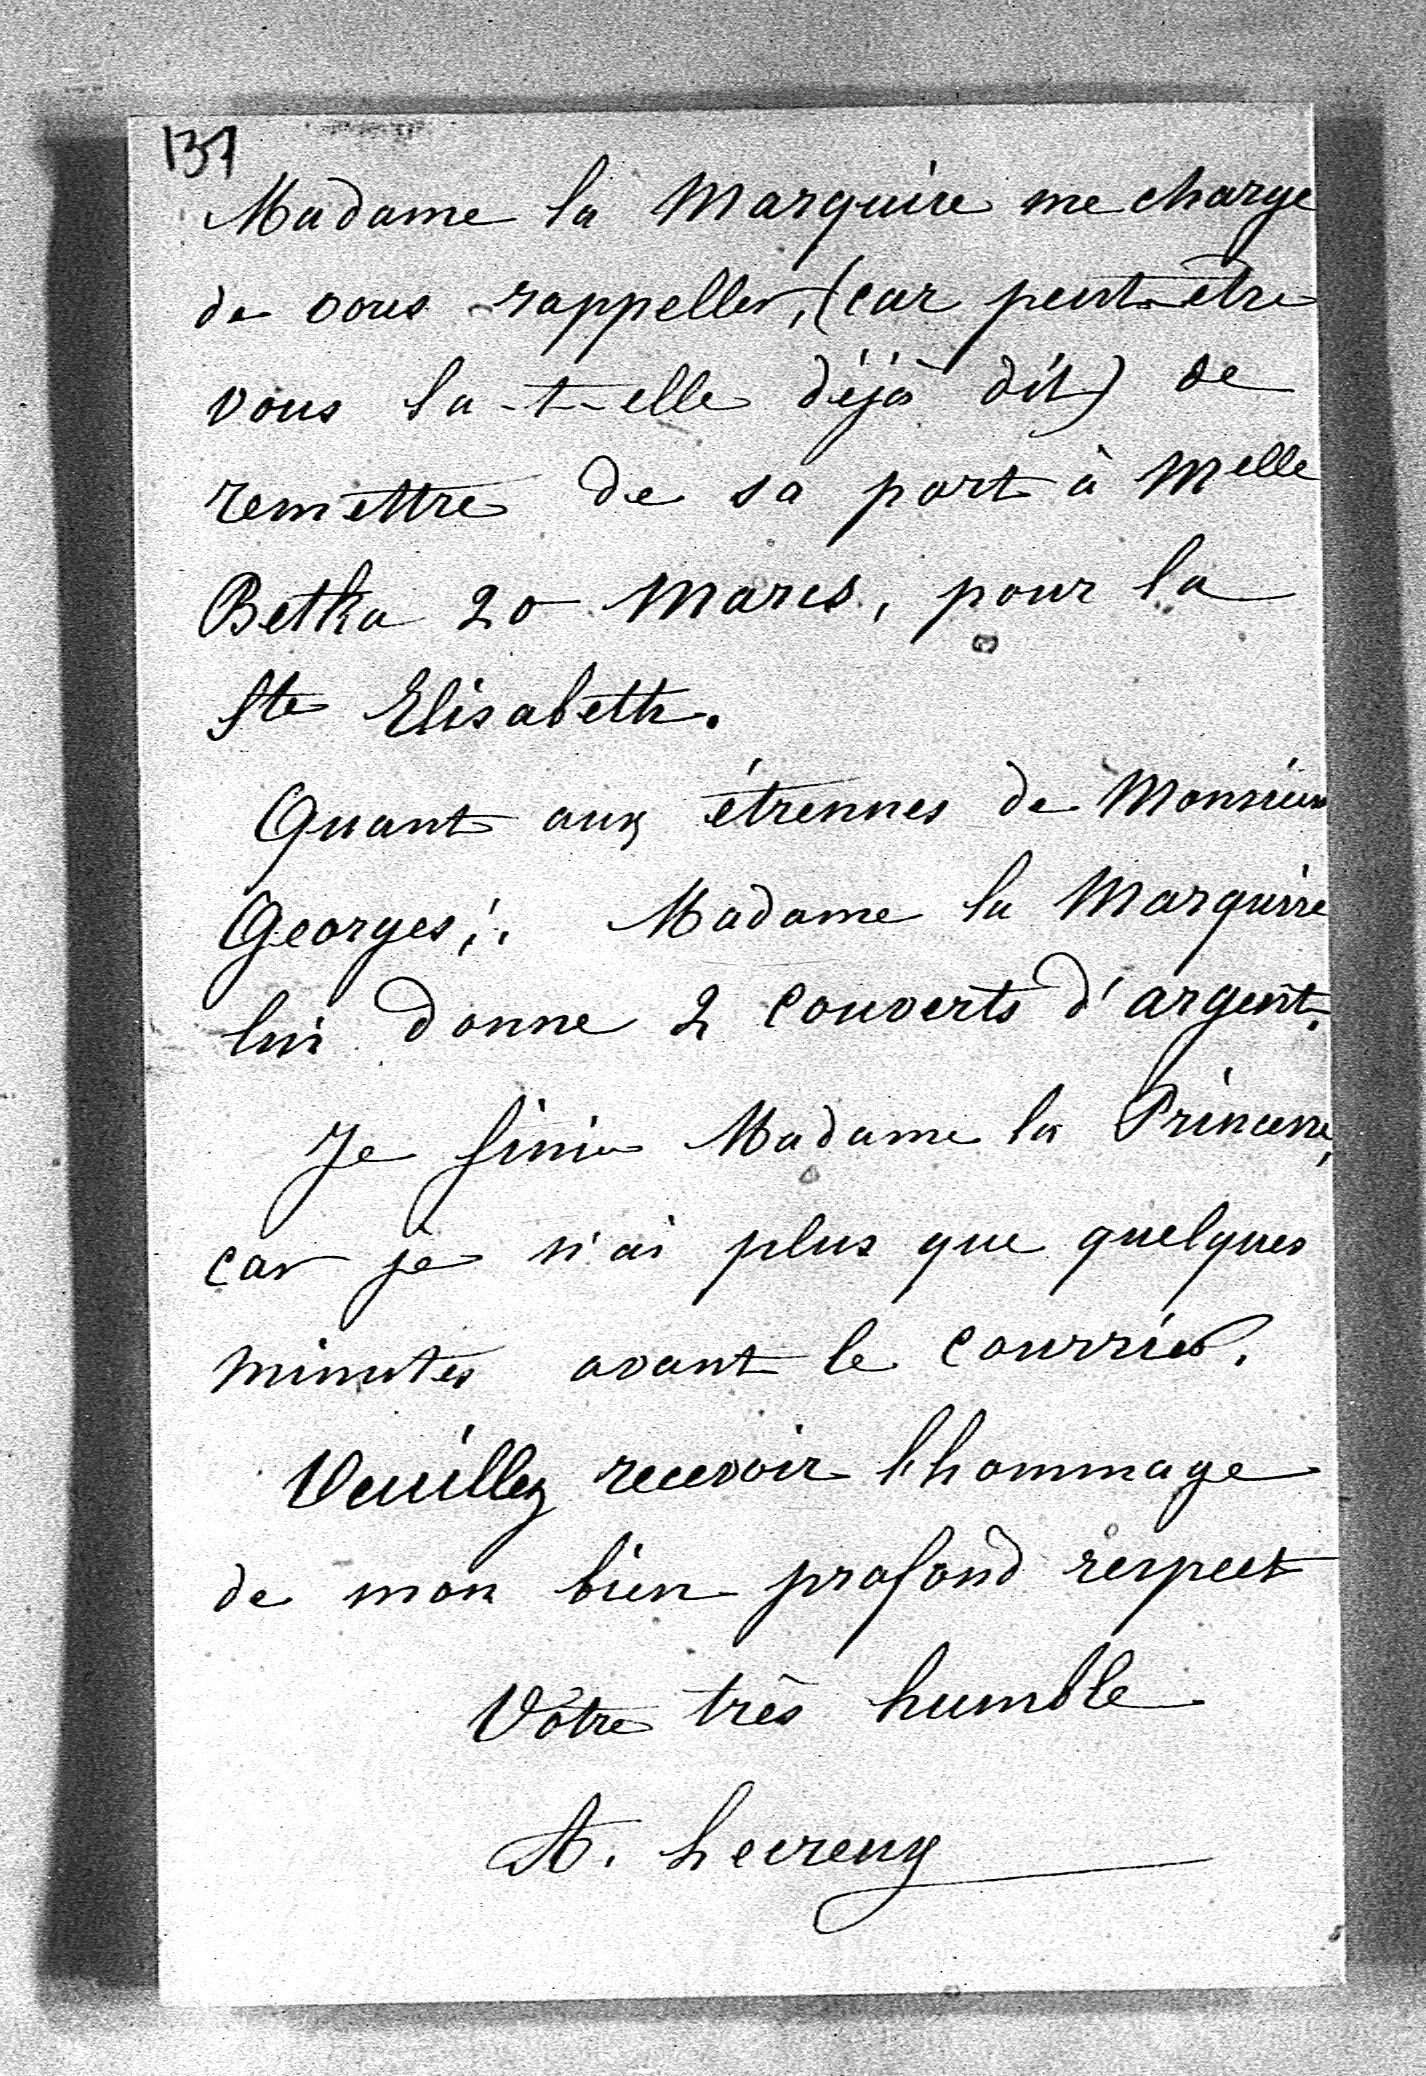 137
Madame la Marquise me charge
de vous rappeller, (car peut-être
vous la-t-elle déjà dit) de
remettre de sa part à Melle
Betka 20 Marcs, pour la
Ste Elisabeth.
Quant aux étrennes de Monsieur
Georges, Madame la Marquise
lui donne 2 couverts d'argent.
Je finis Madame la Princesse,
car je n'ai plus que quelques
minutes avant le courrier.
Veuillez recevoir l'hommage
de mon bien profond respect
Vôtre très humble
A.